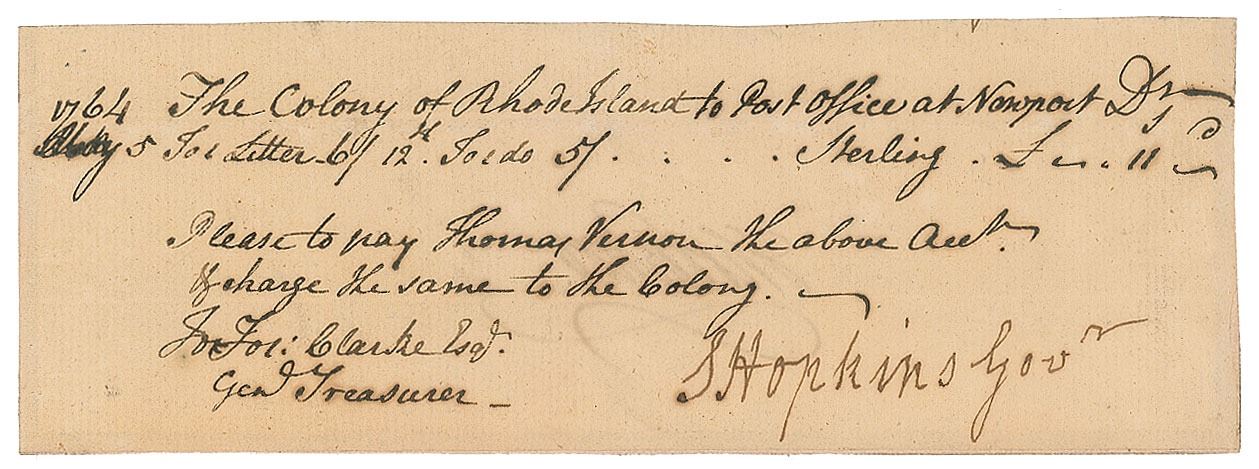 1764 The Colony of Rhode Island to Post Office at Newport Dr
May 5 To 1 Letter 6/ 12th. To 1 do 5/ . . . . Sterling . £ " . 11 s d
Please to pay Thomas Vernon the above Acct.
& charge the same to the Colony.
To Jos: Clarke Esqr.
Genl Treasurer
S Hopkins Govr